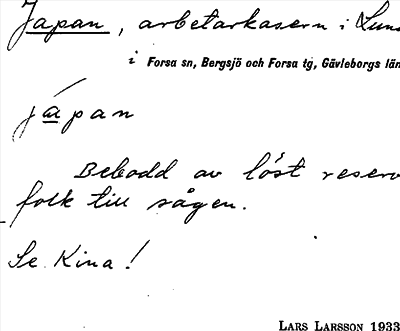 Japan, arbetarkasern i Lund
i Forsa sn, Bergsjö och Forsa tg, Gävleborgs län
jápan
Bebodd av löst reserv
folk till sågen.
Se Kina!
LARS LARSSON 1933